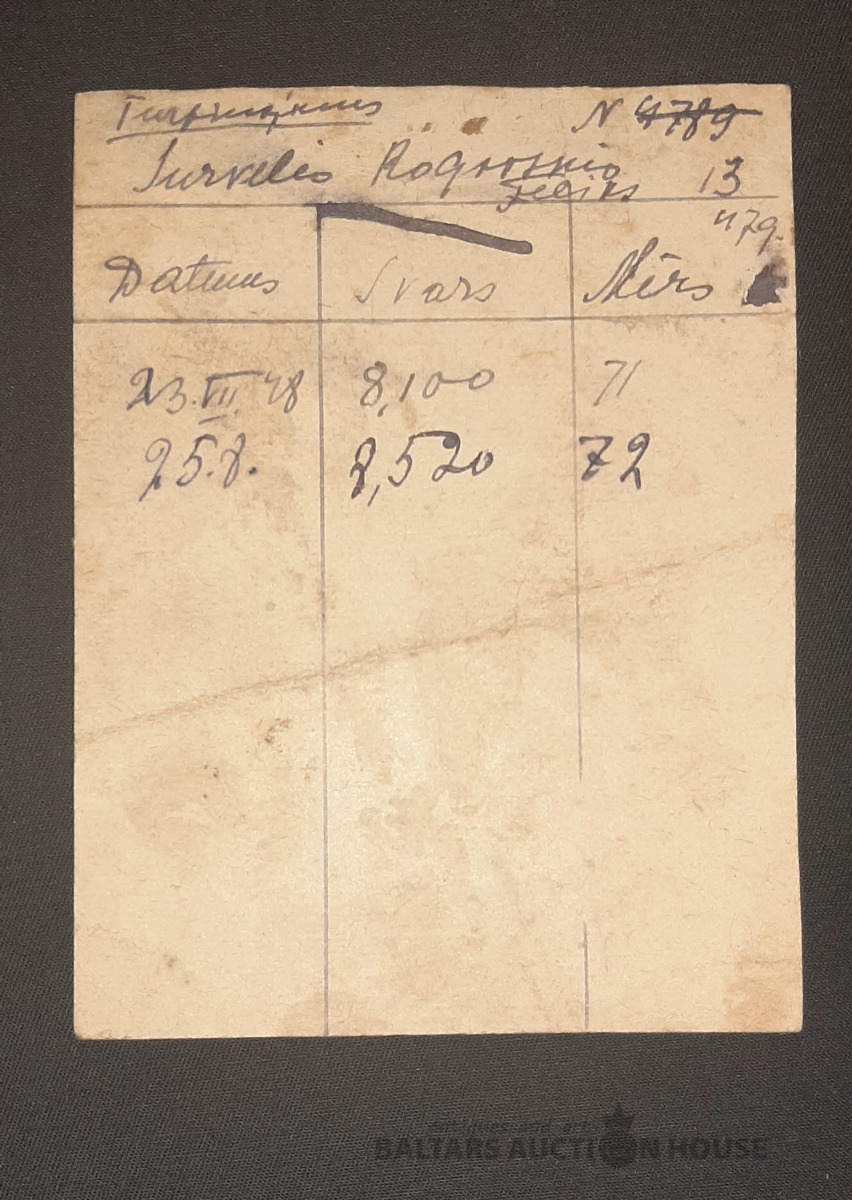 Turpinājums N 4789
Survelis 13
Feliks
479.
Datums Svars Mērs
23.VII.48 8,100 71
25.8. 8,520 72
antiques and art
BALTARS AUCTION HOUSE